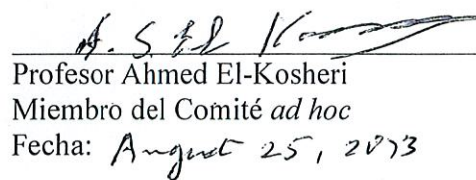 Profesor Ahmed El-Kosheri
Miembro del Comité ad hoc
Fecha: August 25, 2013